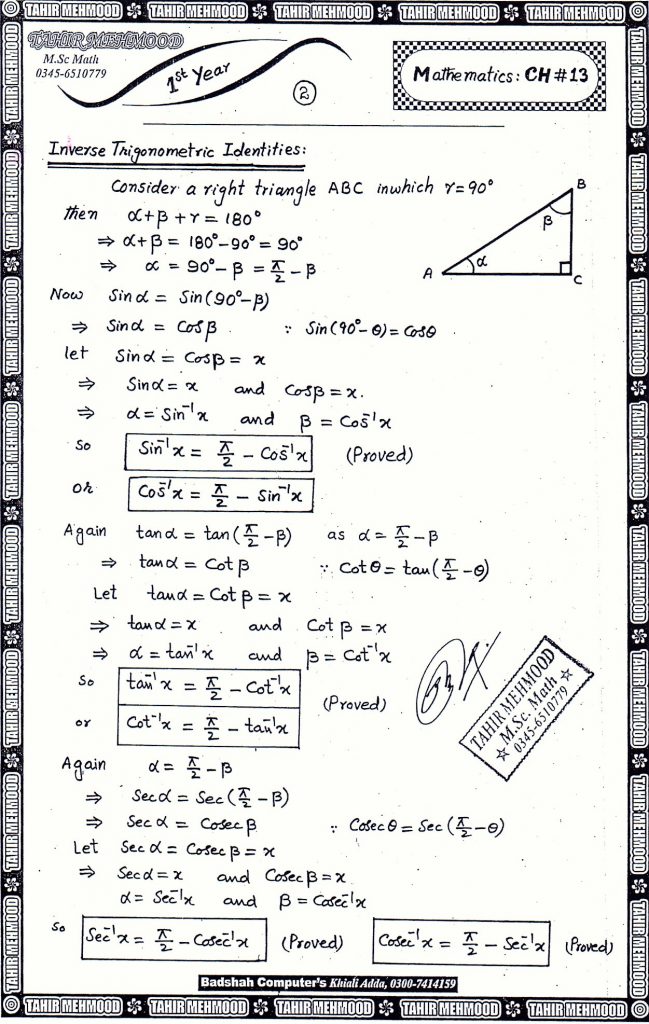 TAHIR MEHMOOD TAHIR MEHMOOD TAHIR MEHMOOD TAHIR MEHMOOD TAHIR MEHMOOD
TAHIR MEHMOOD
M.Sc Math
0345-6510779
1st Year
2
Mathematics: CH #13
Inverse Trigonometric Identities:
Consider a right triangle ABC in which γ = 90°
then α+β+γ = 180°
⇒ α+β = 180°-90° = 90°
⇒ α = 90°-β = π/2 - β
A B C α β
Now Sinα = Sin(90°-β)
⇒ Sinα = Cosβ ∵ Sin(90°-θ) = Cosθ
let Sinα = Cosβ = x
⇒ Sinα = x and Cosβ = x.
⇒ α = Sin⁻¹x and β = Cos⁻¹x
So Sin⁻¹x = π/2 - Cos⁻¹x (Proved)
Or Cos⁻¹x = π/2 - Sin⁻¹x
Again tanα = tan(π/2 - β) as α = π/2 - β
⇒ tanα = Cotβ ∵ Cotθ = tan(π/2 - θ)
Let tanα = Cotβ = x
⇒ tanα = x and Cotβ = x
⇒ α = tan⁻¹x and β = Cot⁻¹x
So tan⁻¹x = π/2 - Cot⁻¹x
(Proved)
or Cot⁻¹x = π/2 - tan⁻¹x
TAHIR MEHMOOD
M.Sc. Math
0345-6510779
Again α = π/2 - β
⇒ Secα = Sec(π/2 - β)
⇒ Secα = Cosecβ ∵ Cosecθ = Sec(π/2 - θ)
Let Secα = Cosecβ = x
⇒ Secα = x and Cosecβ = x
α = Sec⁻¹x and β = Cosec⁻¹x
So Sec⁻¹x = π/2 - Cosec⁻¹x (Proved) Cosec⁻¹x = π/2 - Sec⁻¹x (Proved)
Badshah Computer's Khiali Adda, 0300-7414159
TAHIR MEHMOOD TAHIR MEHMOOD TAHIR MEHMOOD TAHIR MEHMOOD TAHIR MEHMOOD